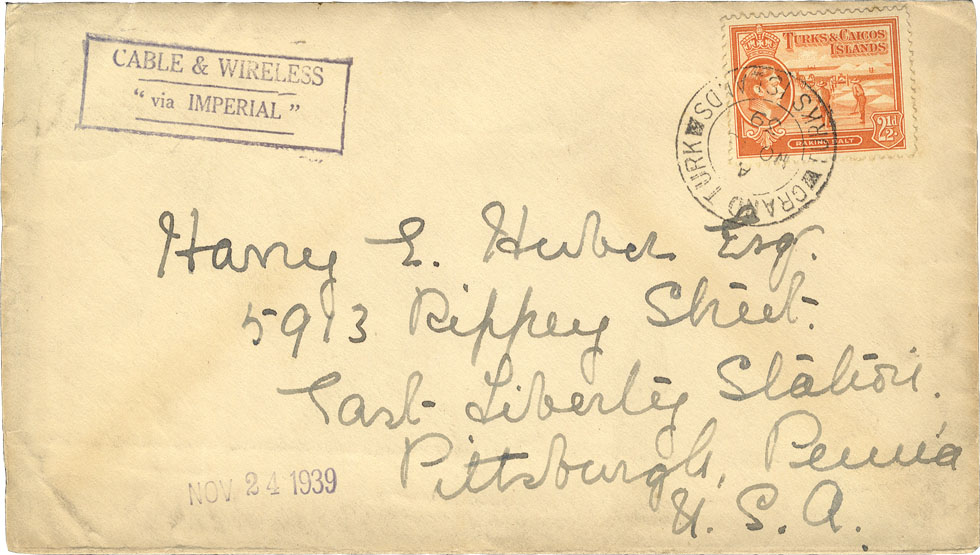 CABLE & WIRELESS
"via IMPERIAL"
TURKS & CAICOS
ISLANDS
2½d
RAKING SALT
GRAND TURK
TURKS ISLANDS
A
NO
39
Harry E. Huber Esqr.
5913 Rippey Street.
East Liberty Station.
Pittsburgh, Penn'a
U. S. A.
NOV 24 1939